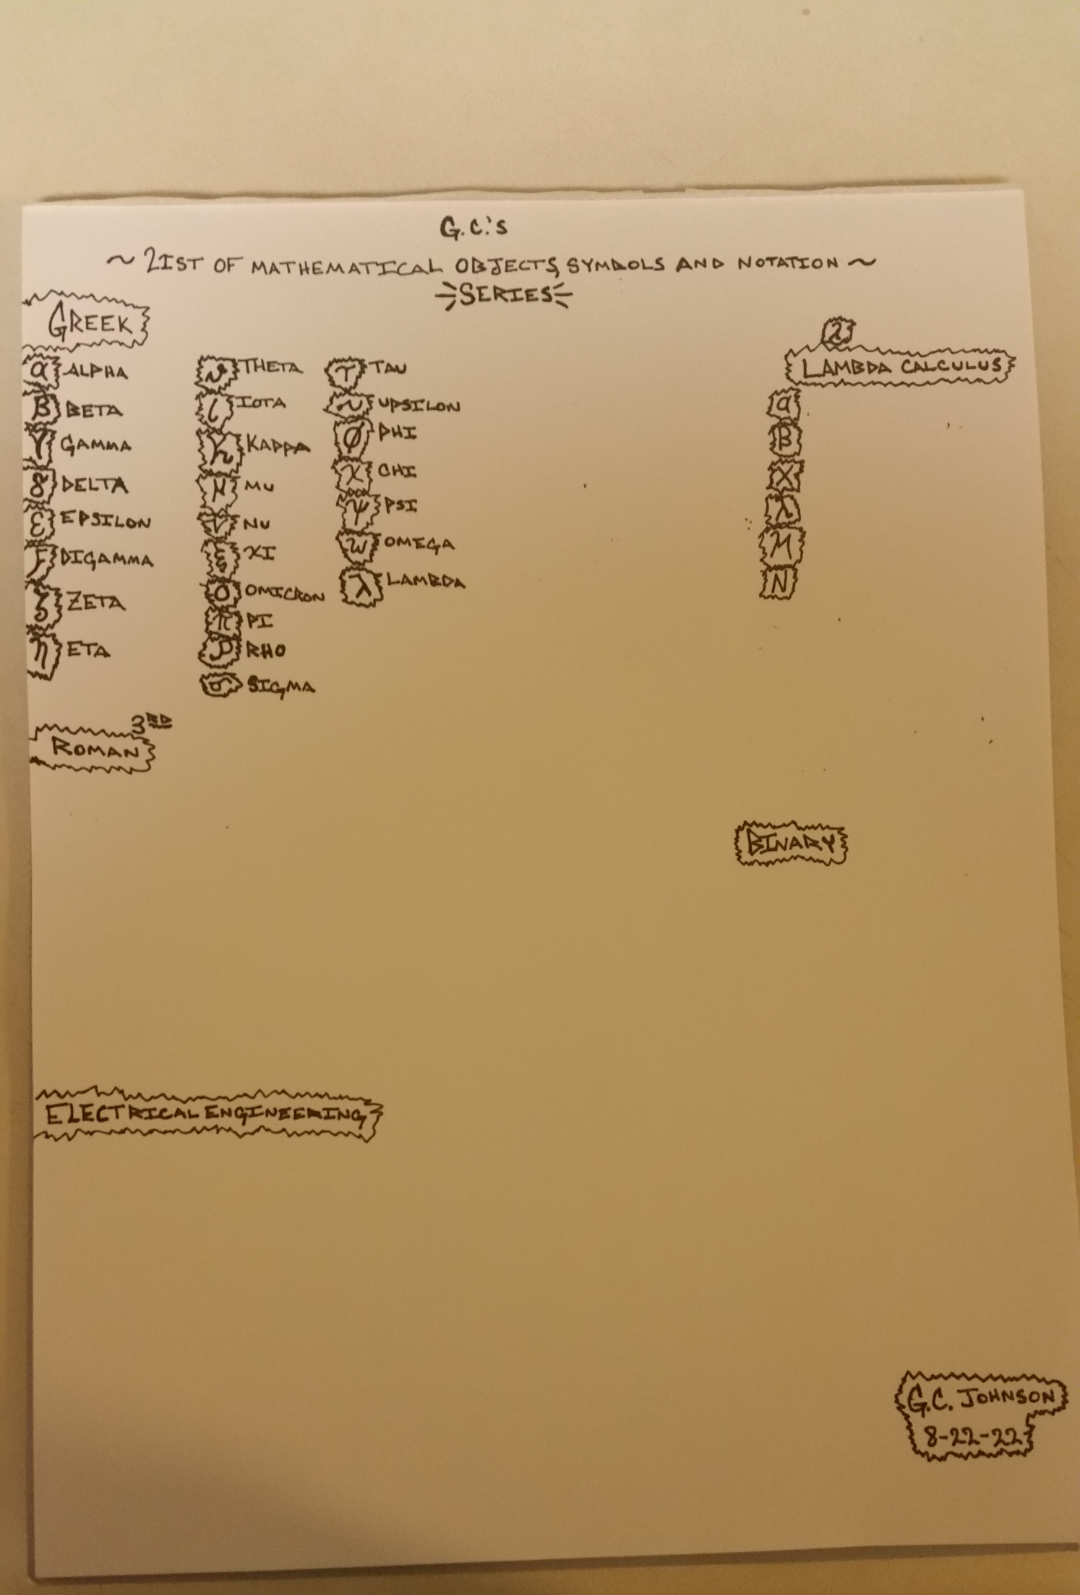 G.C.'s
~ LIST OF MATHEMATICAL OBJECTS, SYMBOLS AND NOTATION ~
SERIES
GREEK
α ALPHA
β BETA
γ GAMMA
δ DELTA
ε EPSILON
ϝ DIGAMMA
ζ ZETA
η ETA
ϑ THETA
ι IOTA
ϰ KAPPA
μ MU
ν NU
ξ XI
ο OMICRON
π PI
ρ RHO
σ SIGMA
τ TAU
υ UPSILON
ø PHI
χ CHI
ψ PSI
ω OMEGA
λ LAMBDA
2
LAMBDA CALCULUS
α
β
X
λ
M
N
3RD
ROMAN
BINARY
ELECTRICAL ENGINEERING
G.C. JOHNSON
8-22-22